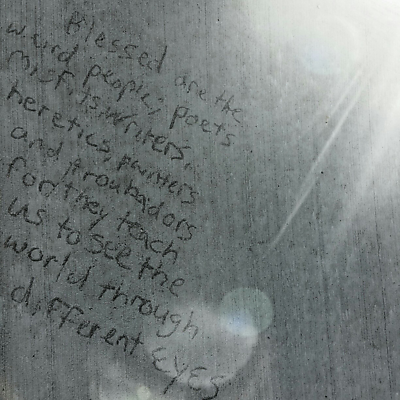 Blessed are the
weird people, poets
misfits, writers,
heretics, painters
and troubadors
for they teach
us to see the
world through
different EYES